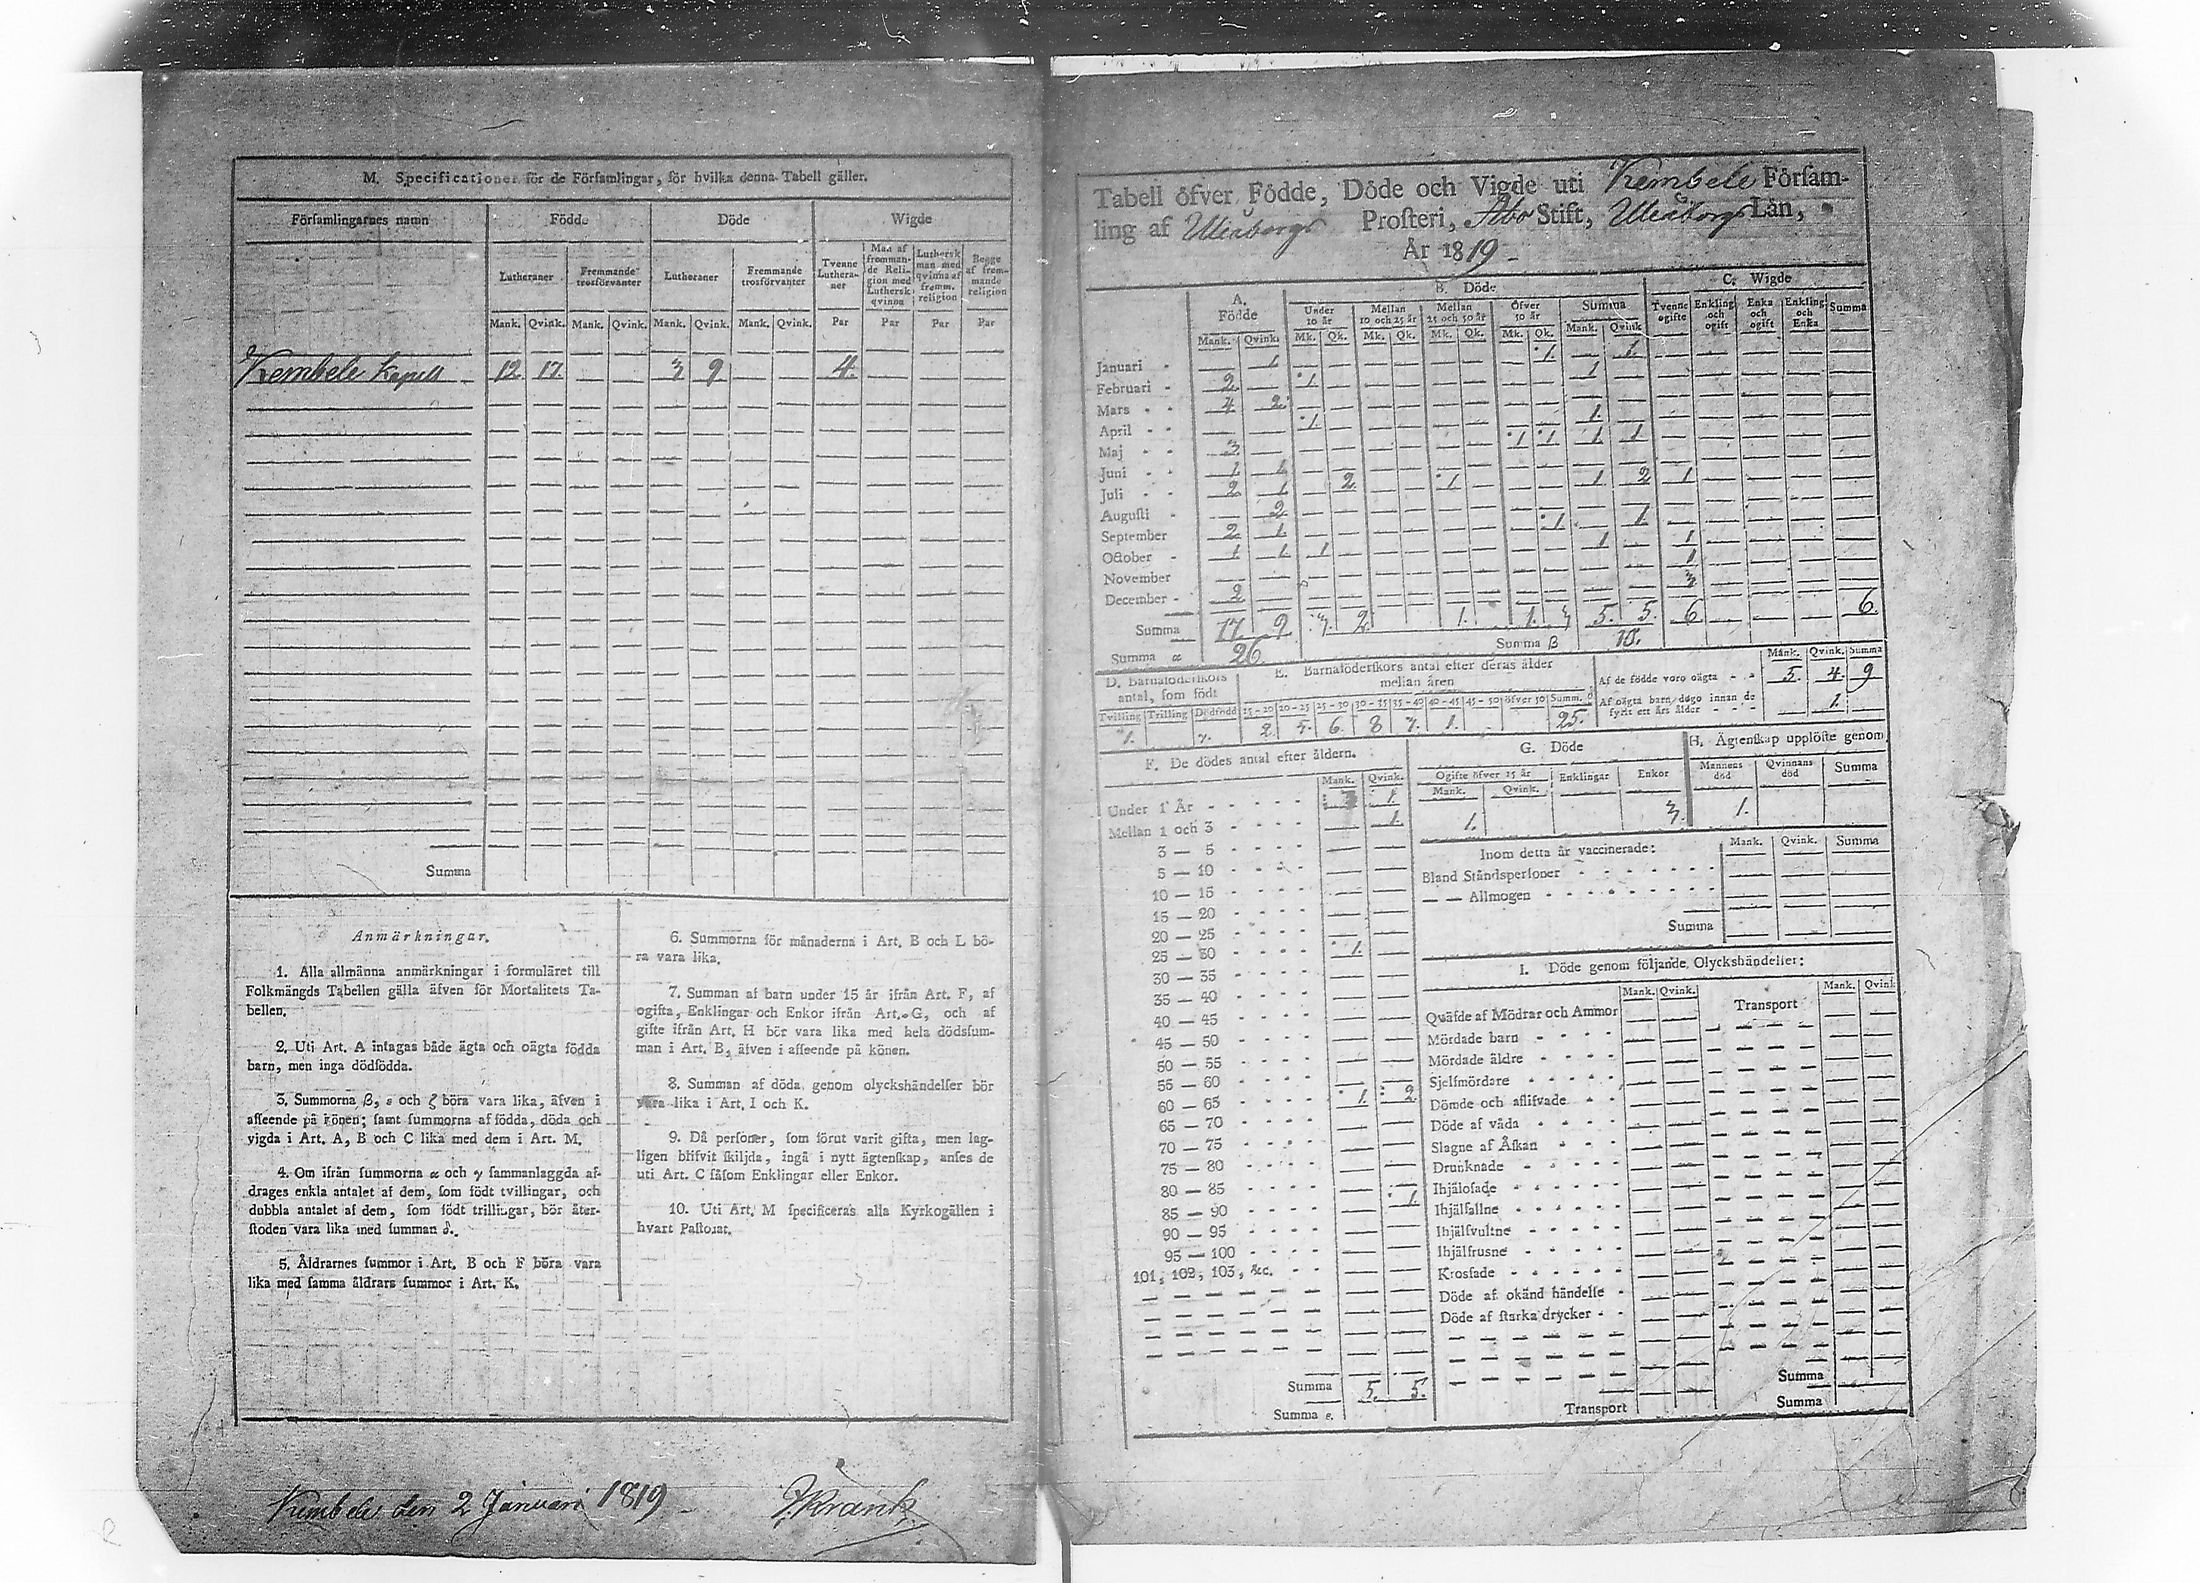 M. Specificationer för de Församlingar, för hvilka denna Tabell gäller.
Församlingarnes namn Födde Döde Wigde
Lutheraner Fremmande trosförvanter Lutheraner Fremmande trosförvanter Tvenne Lutheraner Man af frommande Religion med Luthersk qvinna Luthersk man med qvinna af fremm. religion Begge af fremmande religion
Mank. Qvink. Mank. Qvink. Mank. Qvink. Mank. Qvink. Par Par Par Par
Kembele Kapell 12 17. 3 9. 4.
Summa
Anmärkningar.
1. Alla allmänna anmärkningar i formuläret till
Folkmängds Tabellen gälla äfven för Mortalitets Ta-
bellen.
2. Uti Art. A intagas både ägta och oägta födda
barn, men inga dödfödda.
3. Summorna β, ε och ζ böra vara lika, äfven i
afseende på könen; samt summorna af födda, döda och
vigda i Art. A, B och C lika med dem i Art. M.
4. Om ifrån summorna α och γ sammanlaggda af-
drages enkla antalet af dem, som födt tvillingar, och
dubbla antalet af dem, som födt trillingar, bör åter-
stoden vara lika med summan δ.
5. Åldrarnes summor i Art. B och F böra vara
lika med samma åldrars summor i Art. K.
6. Summorna för månaderna i Art. B och L bö-
ra vara lika.
7. Summan af barn under 15 år ifrån Art. F, af
ogifta, Enklingar och Enkor ifrån Art. G, och af
gifte ifrån Art. H bör vara lika med hela dödssum-
man i Art. B, äfven i afseende på könen.
8. Summan af döda genom olyckshändelser bör
vara lika i Art. I och K.
9. Då personer, som förut varit gifta, men lag-
ligen blifvit skiljda, ingå i nytt ägtenskap, anses de
uti Art. C såsom Enklingar eller Enkor.
10. Uti Art. M specificeras alla Kyrkogällen i
hvart Pastorat.
Kembele den 2 Januari 1819
Tabell öfver Födde, Döde och Vigde uti Kembele Församling
af Uleåborgs Prosteri, Åbo Stift, Uleåborgs Län,
År 1819
A. Födde B. Döde C. Wigde
Under 10 år Mellan 10 och 25 år Mellan 25 och 50 år Öfver 50 år Summa Tvenne ogifte Enkling och ogift Enka och ogift Enkling och Enka Summa
Mank. Qvink. Mk. Qk. Mk. Qk. Mk. Qk. Mk. Qk. Mank. Qvink.
Januari 1 1. 1.
Februari 2. 1. 1
Mars 4 2.
April 1. 1.
Maj 3. 1 1. 1 1
Juni 1. 1.
Juli 2 1 2. 1 1 2 1
Augusti 2.
September 2. 1. 1. 1.
October 1. 1. 1 1 1.
November 1
December 2. 3.
Summa 17. 9. 3. 2. 1. 1. 3 5. 5. 6 6.
Summa α 26. Summa β 10.
D. Barnaföderskors antal, som födt E. Barnaföderskors antal efter deras ålder mellan åren
Tvilling Trilling Dödfödd 15-20 20-25 25-30 30-35 35-40 40-45 45-50 öfver 50 Summ. δ
1. 2. 5. 6. 8 1. 25.
Mank. Qvink. Summa
Af de födde voro oägta 5. 4. 9
Af oägta barn dogo innan de fyllt ett års ålder 1.
F. De dödes antal efter åldern.
Mank. Qvink.
Under 1 År 3 1.
Mellan 1 och 3 1.
3 — 5
5 — 10
10 — 15
15 — 20
20 — 25
25 — 30 1.
30 — 35
35 — 40
40 — 45
45 — 50
50 — 55
55 — 60
60 — 65 1. 2.
65 — 70
70 — 75
75 — 80
80 — 85 1.
85 — 90
90 — 95
95 — 100
101, 102, 103, &c.
Summa 5. 5.
Summa ε.
G. Döde
Ogifte öfver 15 år Enklingar Enkor
Mank. Qvink.
1. 3.
H. Ägtenskap upplöste genom
Mannens död Qvinnans död Summa
1.
Inom detta år vaccinerade: Mank. Qvink. Summa
Bland Ståndspersoner
— — Allmogen
Summa
I. Döde genom följande Olyckshändelser:
Mank. Qvink. Transport Mank. Qvink.
Quäfde af Mödrar och Ammor
Mördade barn
Mördade äldre
Sjelfmördare
Dömde och aflifvade
Döde af våda
Slagne af Åskan
Drunknade
Ihjälosade
Ihjälfallne
Ihjälsvultne
Ihjälfrusne
Krossade
Döde af okänd händelse
Döde af starka drycker
Summa
Transport Summa